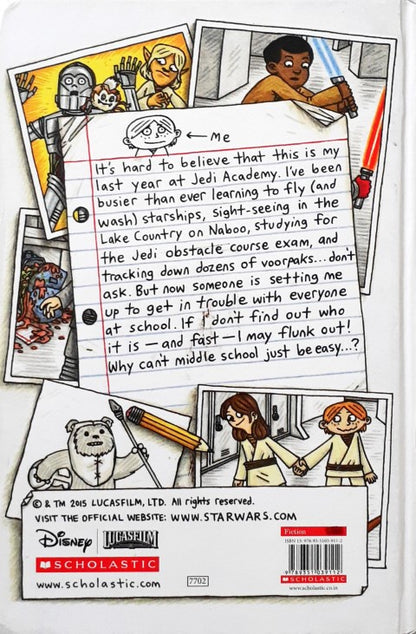 ← Me
It's hard to believe that this is my
last year at Jedi Academy. I've been
busier than ever learning to fly (and
wash) starships, sight-seeing in the
Lake Country on Naboo, studying for
the Jedi obstacle course exam, and
tracking down dozens of voorpaks...don't
ask. But now someone is setting me
up to get in trouble with everyone
at school. If I don't find out who
it is—and fast—I may flunk out!
Why can't middle school just be easy...?
© & TM 2015 LUCASFILM, LTD. All rights reserved.
VISIT THE OFFICIAL WEBSITE: WWW.STARWARS.COM
Disney | LUCASFILM
SCHOLASTIC
www.scholastic.com
7702
Fiction
SCHOLASTIC
www.scholastic.co.in